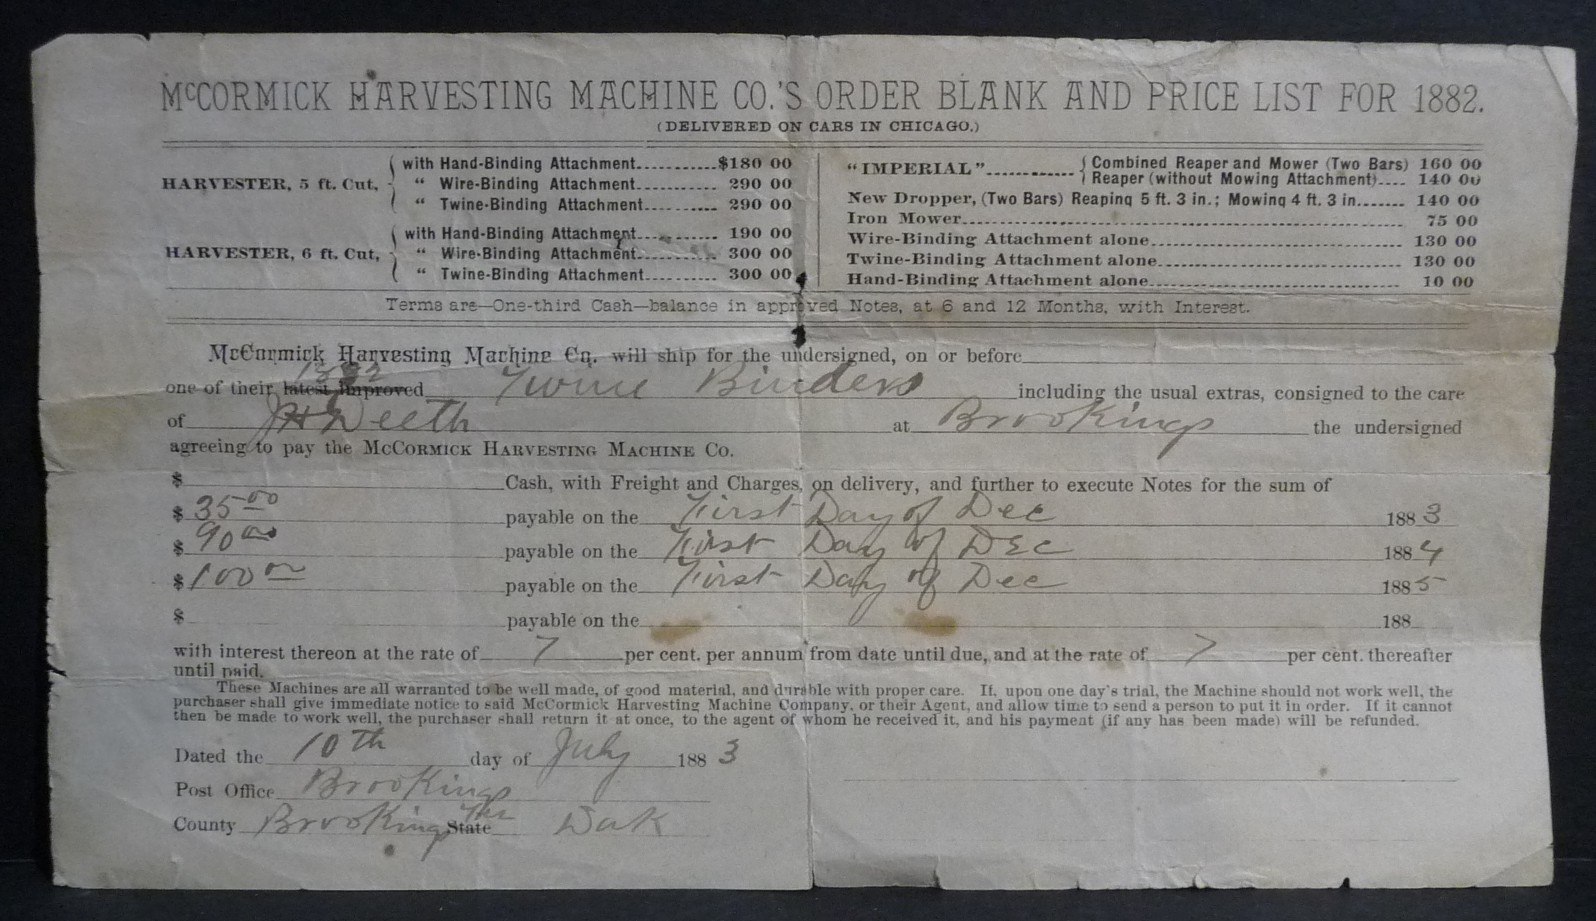 McCORMICK HARVESTING MACHINE CO.'S ORDER BLANK AND PRICE LIST FOR 1882.
(DELIVERED ON CARS IN CHICAGO.)
HARVESTER, 5 ft. Cut,
with Hand-Binding Attachment..........$180 00
" Wire-Binding Attachment.......... 290 00
" Twine-Binding Attachment.......... 290 00
HARVESTER, 6 ft. Cut,
with Hand-Binding Attachment.......... 190 00
" Wire-Binding Attachment.......... 300 00
" Twine-Binding Attachment.......... 300 00
"IMPERIAL"............
Combined Reaper and Mower (Two Bars) 160 00
Reaper (without Mowing Attachment).... 140 00
New Dropper, (Two Bars) Reaping 5 ft. 3 in.; Mowing 4 ft. 3 in....... 140 00
Iron Mower.......... 75 00
Wire-Binding Attachment alone.......... 130 00
Twine-Binding Attachment alone.......... 130 00
Hand-Binding Attachment alone.......... 10 00
Terms are—One-third Cash—balance in approved Notes, at 6 and 12 Months, with Interest.
McCormick Harvesting Machine Co. will ship for the undersigned, on or before
1882
one of their latest improved Twine Binders including the usual extras, consigned to the care
of J H Deeth at Brookings the undersigned
agreeing to pay the McCORMICK HARVESTING MACHINE CO.
$ Cash, with Freight and Charges, on delivery, and further to execute Notes for the sum of
$ 35 00 payable on the First Day of Dec 1883
$ 90 00 payable on the First Day of DEc 1884
$ 100 00 payable on the First Day of Dec 1885
$ payable on the 188
with interest thereon at the rate of 7 per cent. per annum from date until due, and at the rate of 7 per cent. thereafter
until paid.
These Machines are all warranted to be well made, of good material, and durable with proper care. If, upon one day's trial, the Machine should not work well, the
purchaser shall give immediate notice to said McCormick Harvesting Machine Company, or their Agent, and allow time to send a person to put it in order. If it cannot
then be made to work well, the purchaser shall return it at once, to the agent of whom he received it, and his payment (if any has been made) will be refunded.
Dated the 10th day of July 1883
Post Office Brookings
County Brookings State Dak